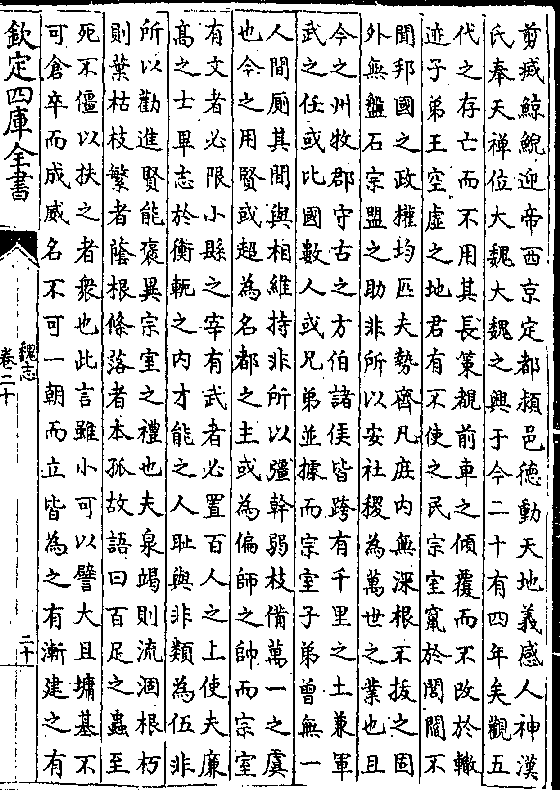 剪㓕鯨鯢迎帝西京定都潁邑德動天地義感人神漢
氏奉天禪位大魏大魏之興于今二十有四年矣觀五
代之存亡而不用其長策覩前車之傾覆而不改於轍
迹子弟王空虚之地君有不使之民宗室竄於閭閻不
聞邦國之政權均匹夫勢齊凡庶内無深根不拔之固
外無盤石宗盟之助非所以安社稷為萬世之業也且
今之州牧郡守古之方伯諸侯皆跨有千里之土兼軍
武之任或比國數人或兄弟並據而宗室子弟曾無一
人間厠其間與相維持非所以彊幹弱枝備萬一之虞
也今之用賢或超為名都之主或為偏師之帥而宗室
有文者必限小縣之宰有武者必置百人之上使夫廉
髙之士畢志於衡軛之内才能之人耻與非類為伍非
所以勸進賢能褒異宗室之禮也夫泉竭則流涸根朽
則葉枯枝繁者蔭根條落者本孤故語曰百足之蟲至
死不僵以扶之者衆也此言雖小可以譬大且墉基不
可倉卒而成威名不可一朝而立皆為之有漸建之有
欽定四庫全書
魏志
卷二十
二十